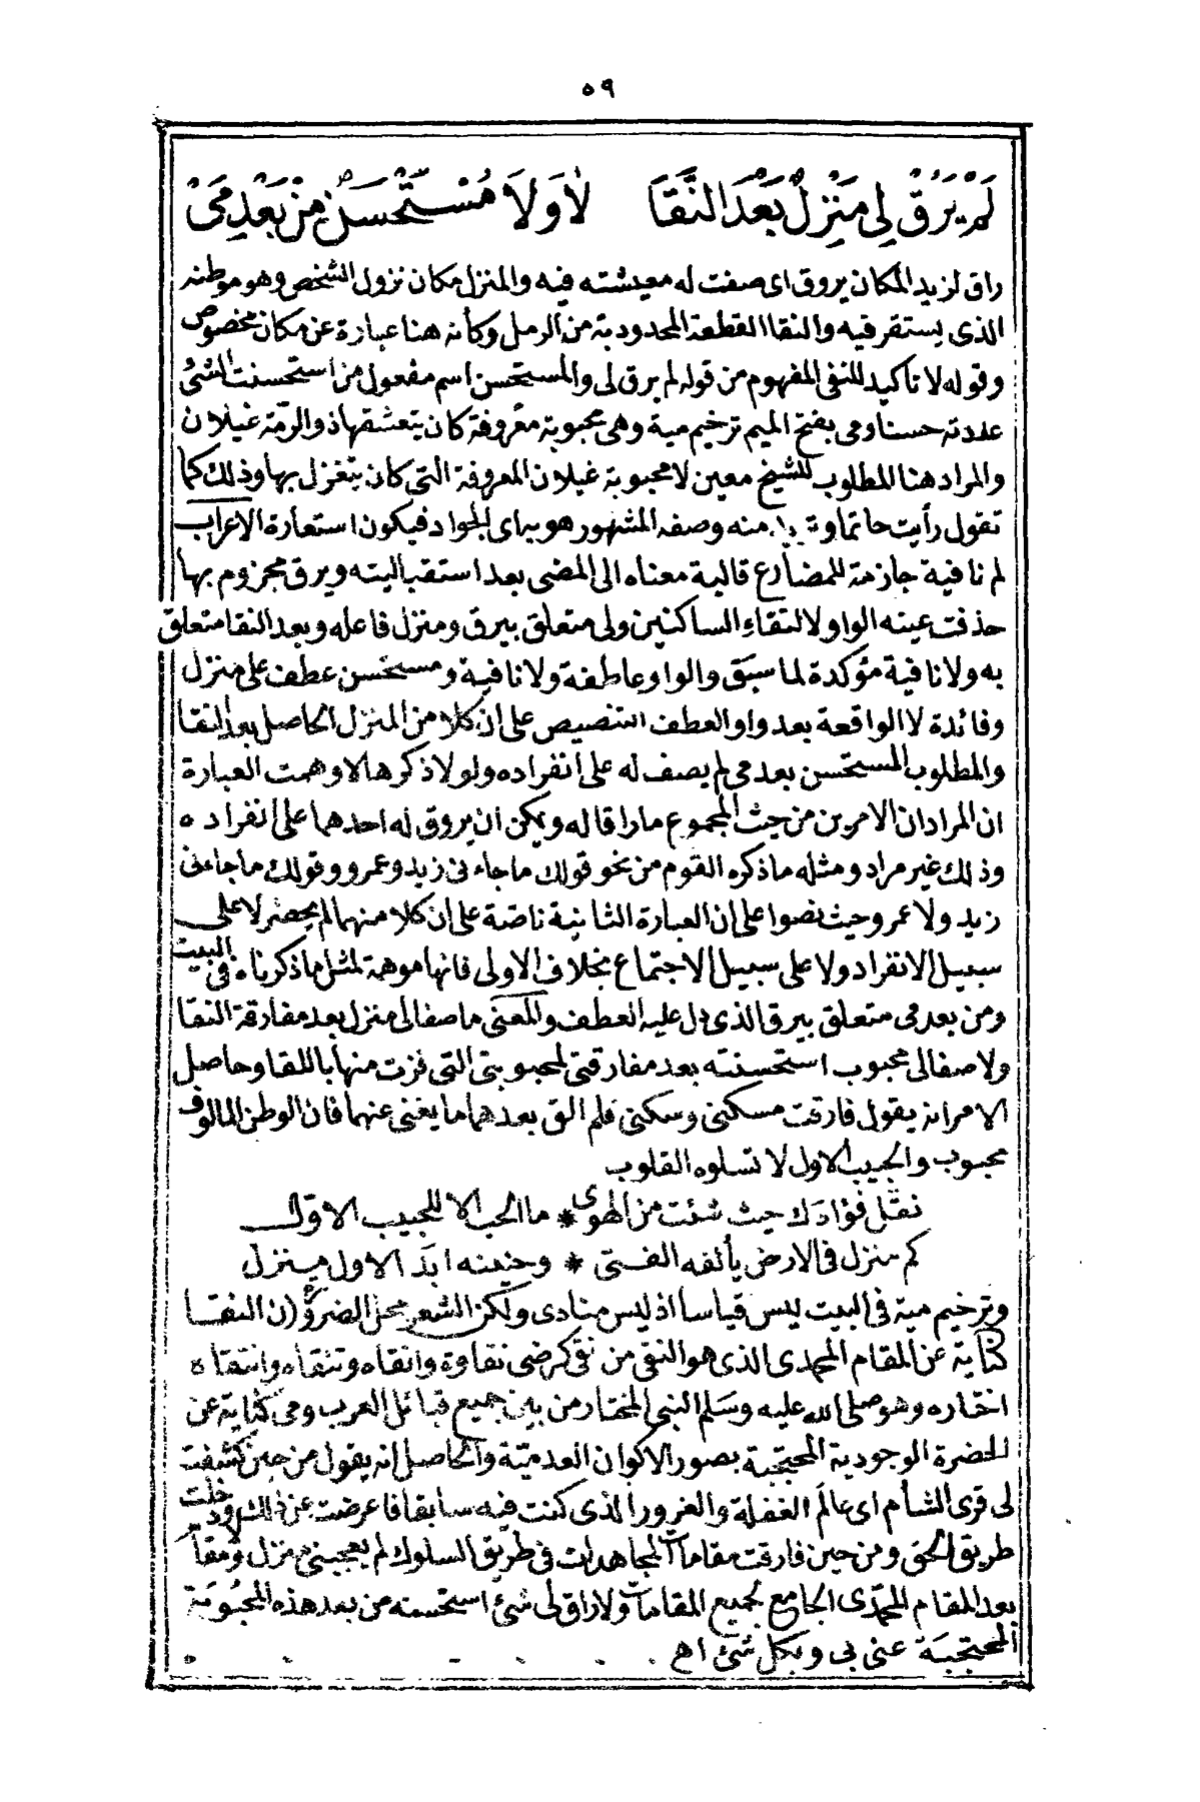 ٥٩
لَمْ يَرُقْ لِى مَنْزِلٌ بَعْدَ النَّقَا لَا وَلَا مُسْتَحْسَنٌ مِنْ بَعْدِ مَىْ
راق لزيد المكان يروق اى صفت له معيشته فيه والمنزل مكان نزول الشخص وهو موطنه
الذى يستقر فيه والنقا القطعة المحدودبة من الرمل وكأنه هنا عبارة عن مكان مخصوص
وقوله لا تاكيد للنفى المفهوم من قوله لم يرق لى والمستحسن اسم مفعول من استحسنت الشئ
عددته حسنا ومى بفتح الميم ترخيم مية وهى محبوبة معروفة كان يتعشقها ذو الرمّة غيلان
والمراد هنا المطلوب للشيخ معين لا محبوبة غيلان المعروفة التى كان يتغزل بها وذلك كما
تقول رأيت حاتما وتريد منه وصفه المشهور هو به اى الجواد فيكون استعارة الاعراب
لم نافية جازمة للمضارع قالبة معناه الى المضى بعد استقباليته ويرق مجزوم بها
حذفت عينه الواو لالتقاء الساكنين ولى متعلق بيرق ومنزل فاعله وبعد النقا متعلق
به ولا نافية مؤكدة لما سبق والواو عاطفة ولا نافية ومستحسن عطف على منزل
وفائدة لا الواقعة بعد واو العطف التنصيص على ان كلا من المنزل الحاصل بعد النقا
والمطلوب المستحسن بعد مى لم يصف له على انفراده ولولا ذكرها لاوهمت العبارة
ان المراد ان الامرين من حيث المجموع ماراقا له ويمكن ان يروق له احدهما على انفراده
وذلك غير مراد ومثله ما ذكره القوم من نحو قولك ما جاءنى زيد وعمرو وقولك ما جاءنى
زيد ولا عمرو حيث نصوا على ان العبارة الثانية ناصّة على ان كلا منهما لم يحضر لا على
سبيل الانفراد ولا على سبيل الاجتماع بخلاف الاولى فانها موهمة لمثل ما ذكرناه فى البيت
ومن بعد مى متعلق بيرق الذى دل عليه العطف والمعنى ما صفا لى منزل بعد مفارقة النقا
ولا صفا لى محبوب استحسنته بعد مفارقتى لمحبوبتى التى فزت منها باللقا وحاصل
الامر انه يقول فارقت مسكنى وسكنى فلم الق بعدهما ما يغنى عنهما فان الوطن المالوف
محبوب والحبيب الاول لا تسلوه القلوب
نقّل فؤادك حيث شئت من الهوى * ما الحب الا للحبيب الاوّل
كم منزل فى الارض يألفه الفتى * وحنينه ابدًا لاول منزل
وترخيم مية فى البيت ليس قياسا اذ ليس منادى ولكن الشعر محل الضرورة (ن النقا
كناية عن المقام المحمدى الذى هو النقى من نقى كرضى نقاوة وانقاه وتنقاه وانتقاه
اختاره وهو صلى الله عليه وسلم النبى المختار من بين جميع قبائل العرب ومى كناية عن
الحضرة الوجودية المحتجبة بصور الاكوان العدمية والحاصل انه يقول من حين كشفت
لى قرى الشأم اى عالم الغفلة والغرور الذى كنت فيه سابقا فاعرضت عن ذلك ودخلت
طريق الحق ومن حين فارقت مقامات المجاهدات فى طريق السلوك لم يعجبنى منزل ومقام
بعد المقام المحمّدى الجامع لجميع المقامات ولا راق لى شئ استحسنه من بعد هذه المحبوبة
المحتجبة عنى بى وبكل شئ اهـ